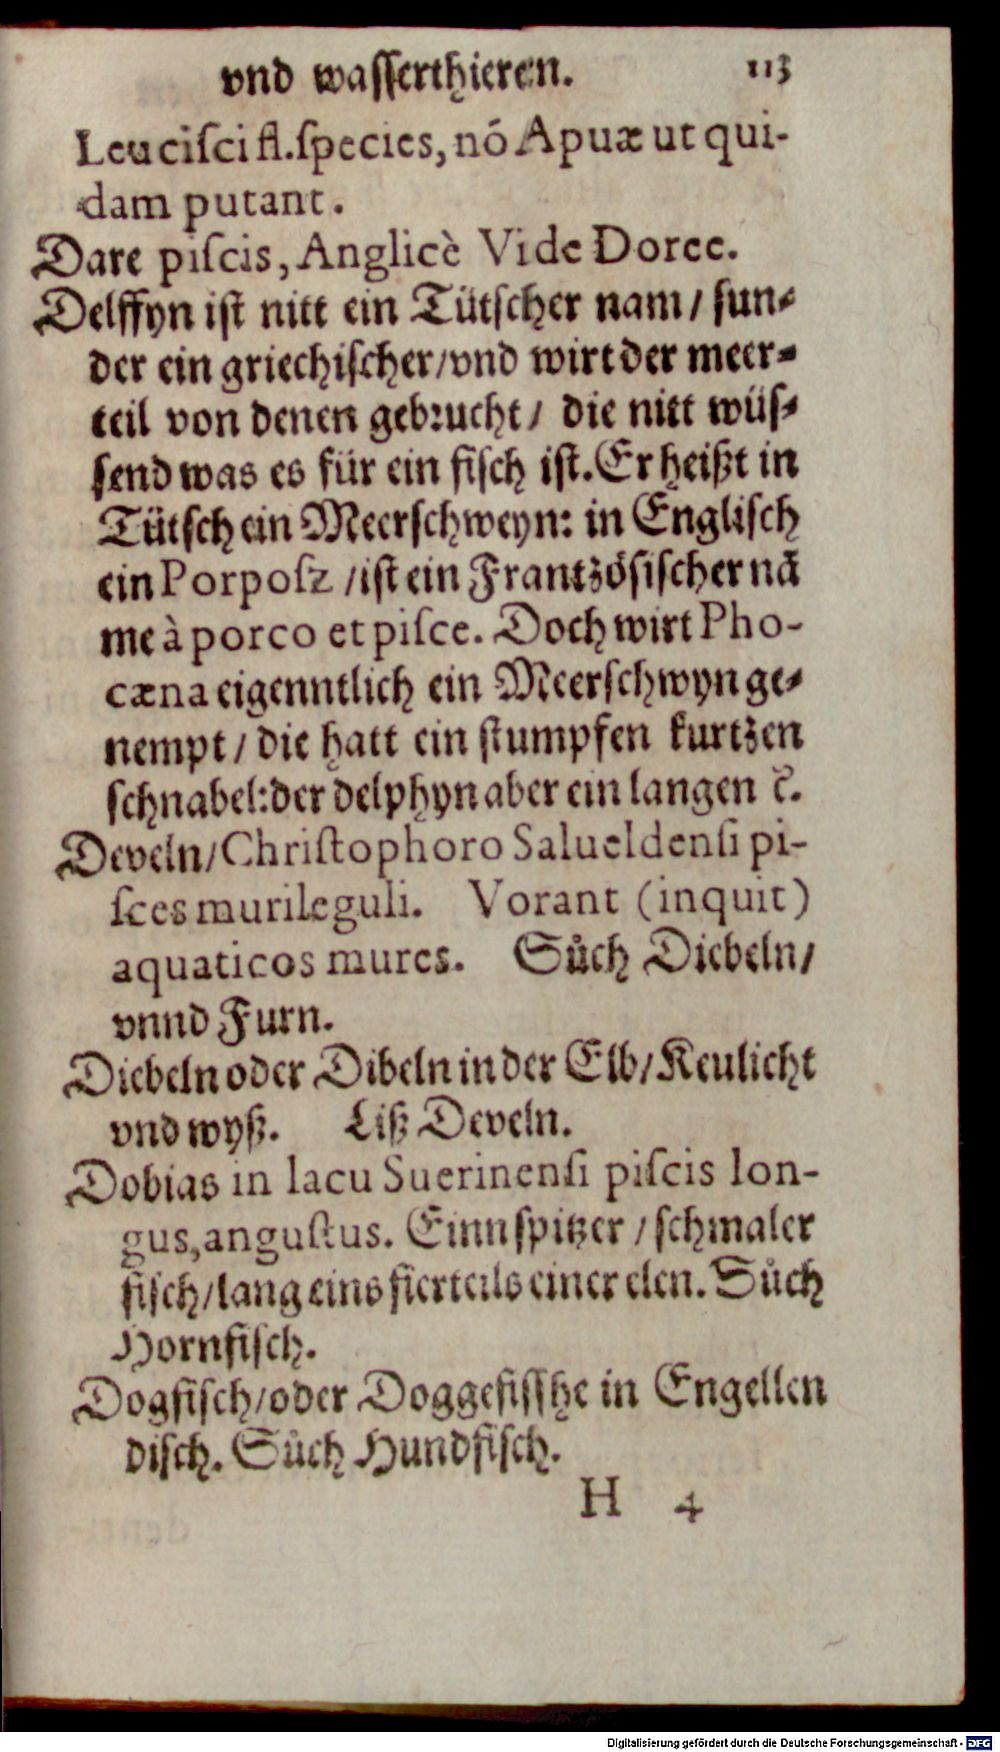 vnd wasserthieren. 113
Leuciſci fl. ſpecies, nō Apuæ ut qui-
dam putant.
Dare piſcis, Anglicè Vide Doree.
Delffyn iſt nitt ein Tütſcher nam / ſun-
der ein griechiſcher / vnd wirt der meer-
teil von denen gebrucht / die nitt wüſ-
ſend was es für ein fiſch iſt. Er heißt in
Tütſch ein Meerſchweyn: in Engliſch
ein Porpoſz / iſt ein Frantzöſiſcher nā
me à porco et piſce. Doch wirt Pho-
cæna eigenntlich ein Meerſchwyn ge-
nempt / die hatt ein ſtumpfen kurtzen
ſchnabel: der delphyn aber ein langen ꝛc.
Develn / Chriſtophoro Salueldenſi pi-
ſces murileguli. Vorant (inquit)
aquaticos mures. Sůch Diebeln /
vnnd Furn.
Diebeln oder Dibeln in der Elb / Keulicht
vnd wyß. Liß Develn.
Dobias in lacu Suerinenſi piſcis lon-
gus, anguſtus. Einn ſpitzer / ſchmaler
fiſch / lang eins fierteils einer elen. Sůch
Hornfiſch.
Dogfiſch / oder Doggefiſſhe in Engellen
diſch. Sůch Hundfiſch.
H 4
Digitalisierung gefördert durch die Deutsche Forschungsgemeinschaft - DFG